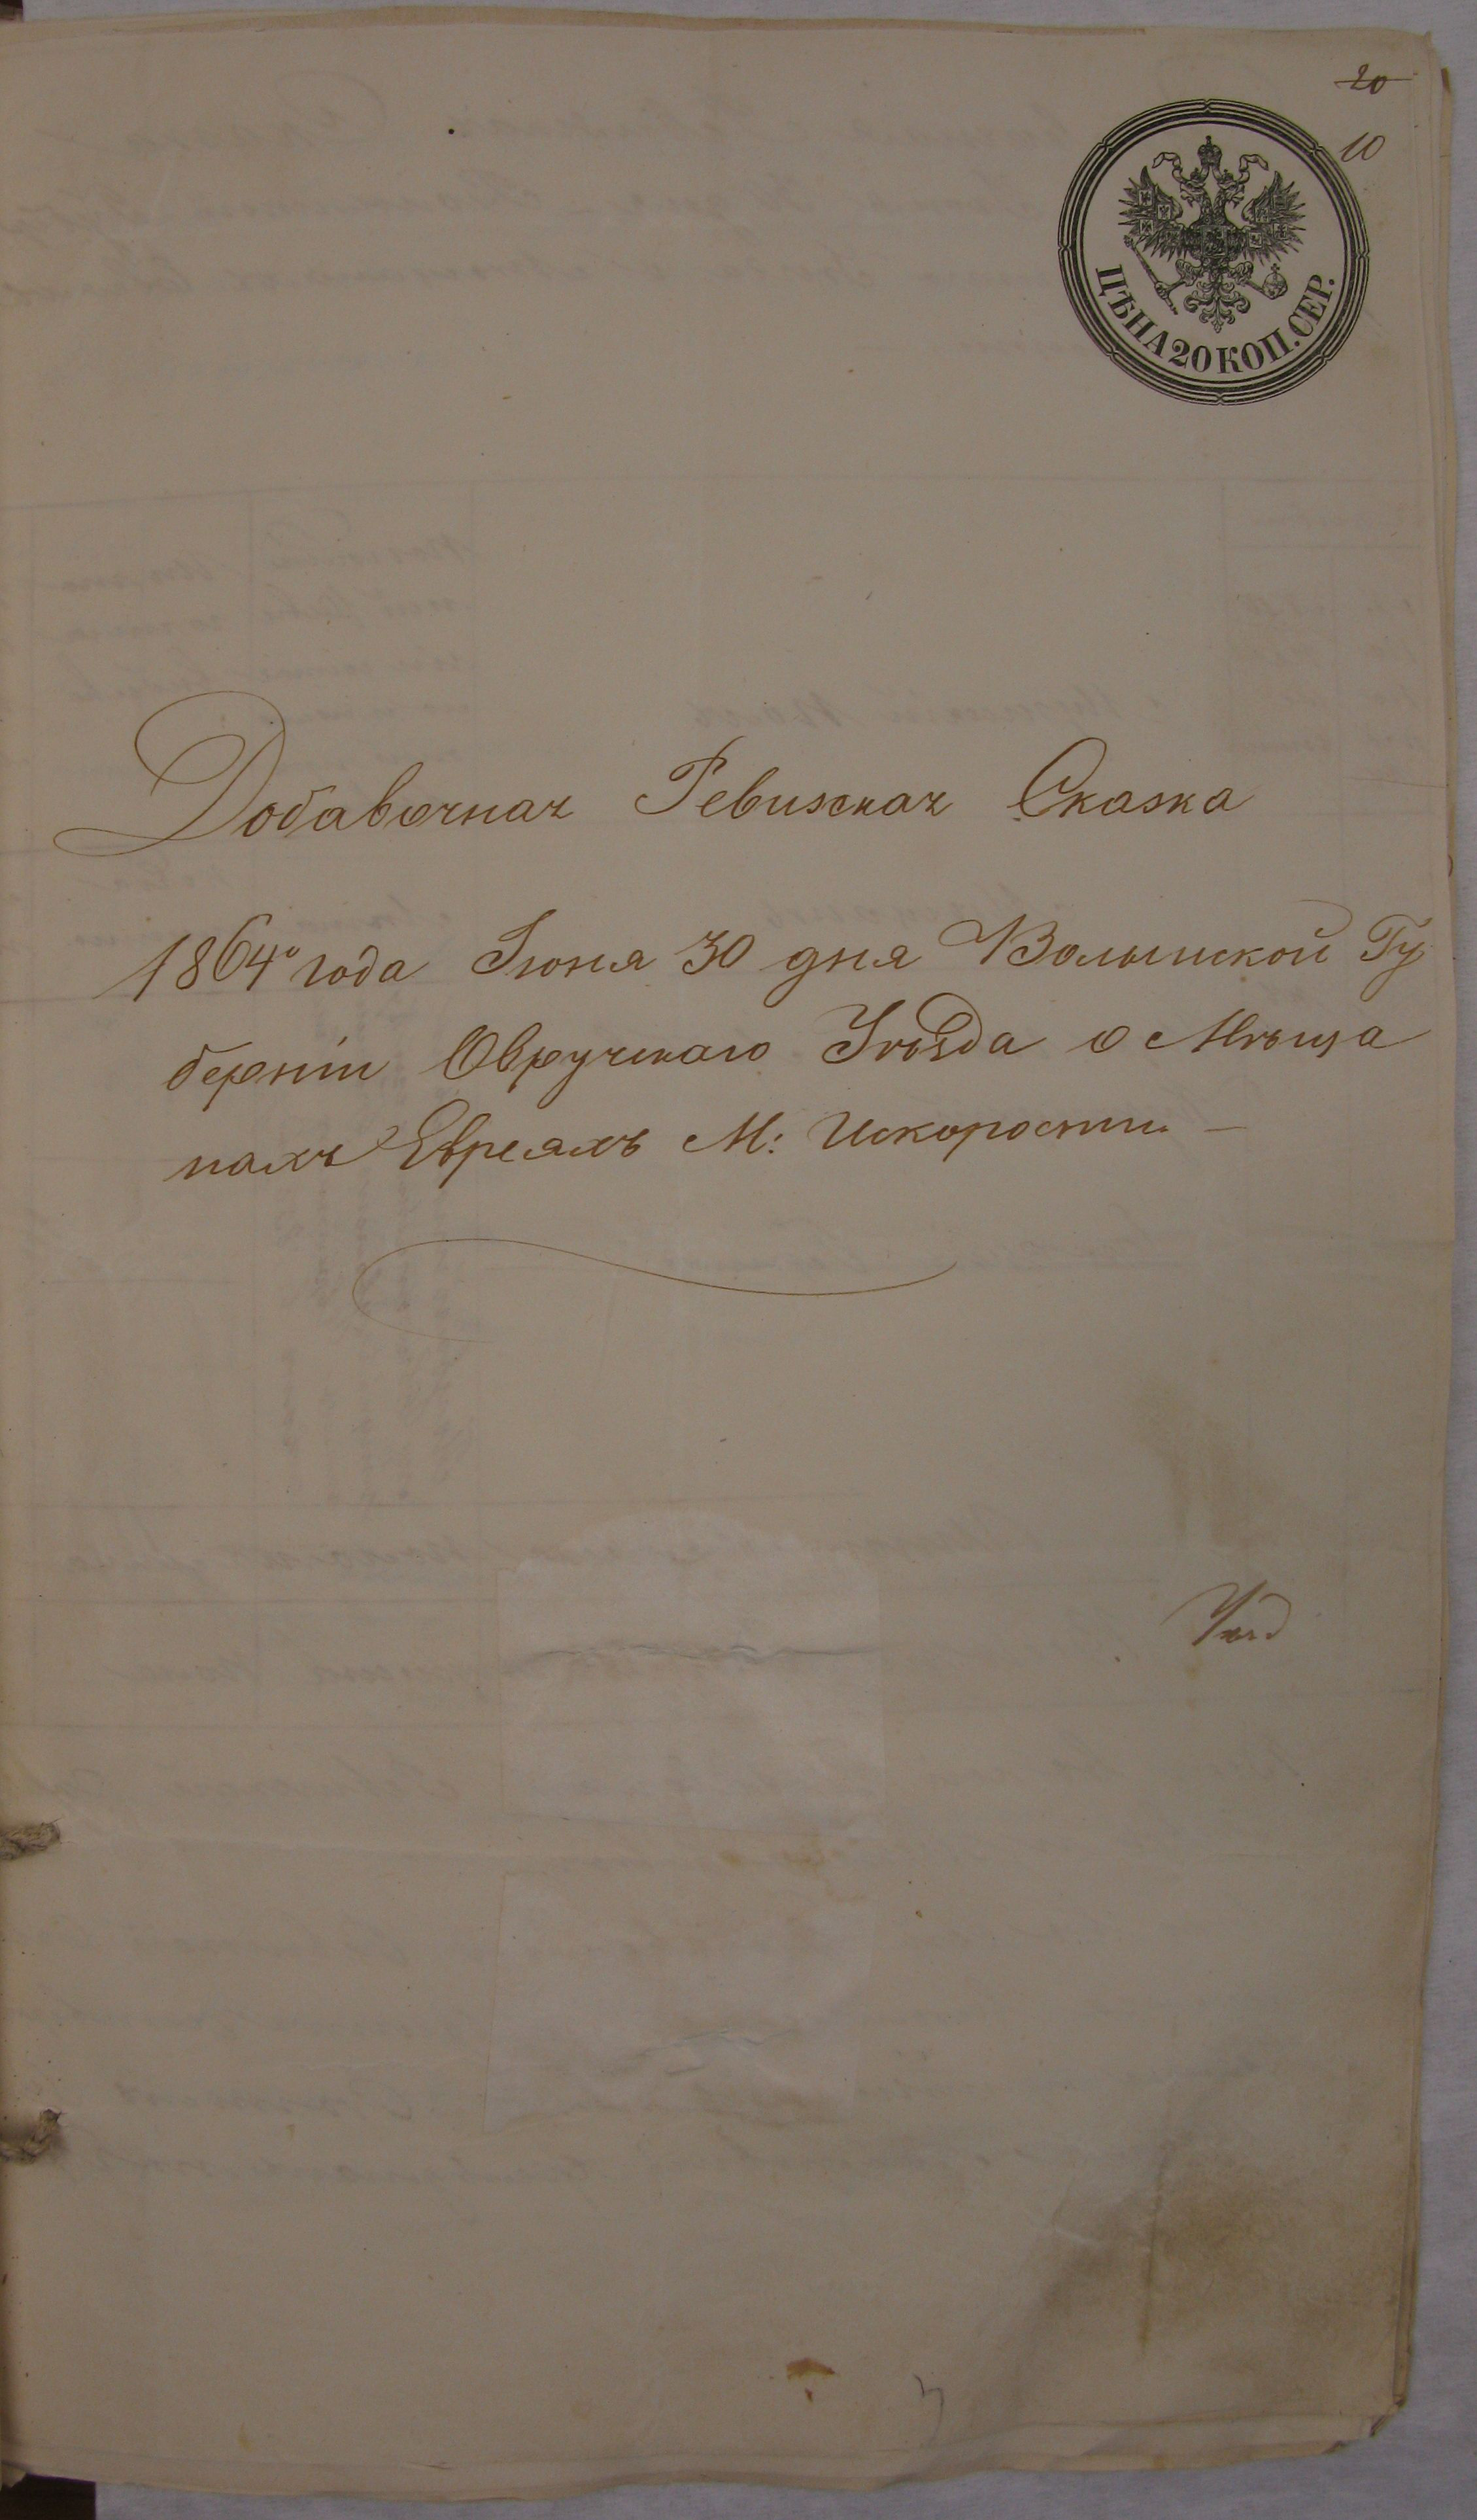 20
10
ЦѢНА 20 КОП. СЕР.
Добавочная Ревизская Сказка
1864го года Іюня 30 дня Волынской Гу
берніи Овручскаго Уѣзда о Мѣща
нахъ Евреяхъ М: Искорости –